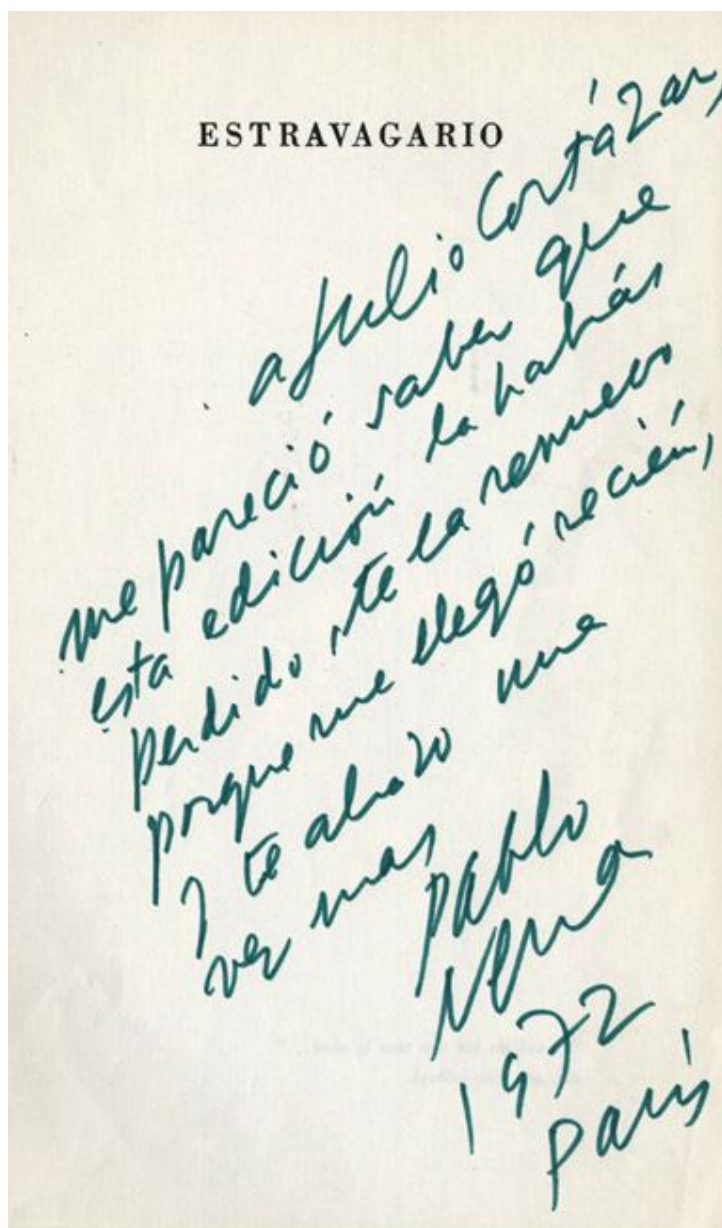 ESTRAVAGARIO
a Julio Cortázar,
me pareció saber que
esta edición la habías
perdido, te la renuevo
porque me llegó recién,
y te abrazo una
vez mas
Pablo
Neruda
1972
París